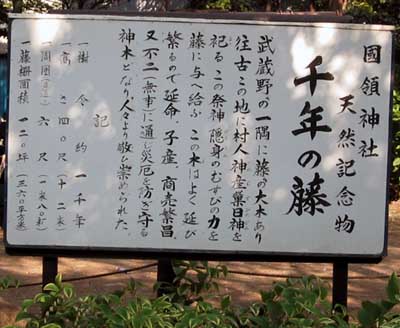 國領神社
天然記念物
千年の藤
武蔵野の一隅に藤の大木あり
往古この地に村人神産巣日神を
祀るこの祭神隠身のむすびの力を
藤に与へ給ふこの木はよく延び
繁るので延命子産商売繁昌
又不二(無事)に通じ災厄を防ぎ守る
神木となり人々より敬ひ崇められた
記
一樹令約一千年
一高さ四〇尺(十二米)
一周囲 六尺(一米八〇糎)
一藤棚面積一二〇坪(三六〇平方米)